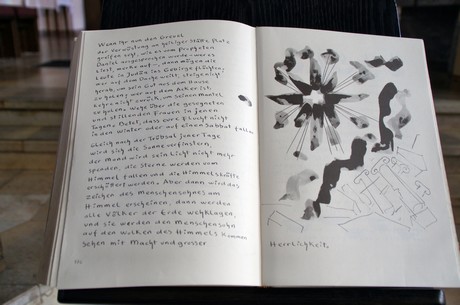 Wenn ihr nun den Greuel
der Verwüstung an heiliger Stätte Platz
greifen seht, wie es vom Propheten
Daniel vorgesprochen wurde - wer es
liest, merke auf -, dann mögen die
Leute in Judäa ins Gebirge flüchten,
wer auf dem Dache weilt, steige nicht
herab, um sein Gut aus dem Hause
zu holen; wer auf dem Acker ist
kehre nicht zurück, um seinen Mantel
zu holen. Wehe über die gesegneten
und stillenden Frauen in jenen
Tagen! Betet, dass eure Flucht nicht
in den Winter oder auf einen Sabbat fallen
Gleich nach der Trübsal jener Tage
wird sich die Sonne verfinstern,
der Mond wird sein Licht nicht mehr
spenden, die Sterne werden vom
Himmel fallen und die Himmelskräfte
erschüttert werden. Aber dann wird das
Zeichen des Menschensohnes am
Himmel erscheinen, dann werden
alle Völker der Erde wehklagen,
und sie werden den Menschensohn
auf den Wolken des Himmels kommen
sehen mit Macht und grosser
Herrlichkeit.